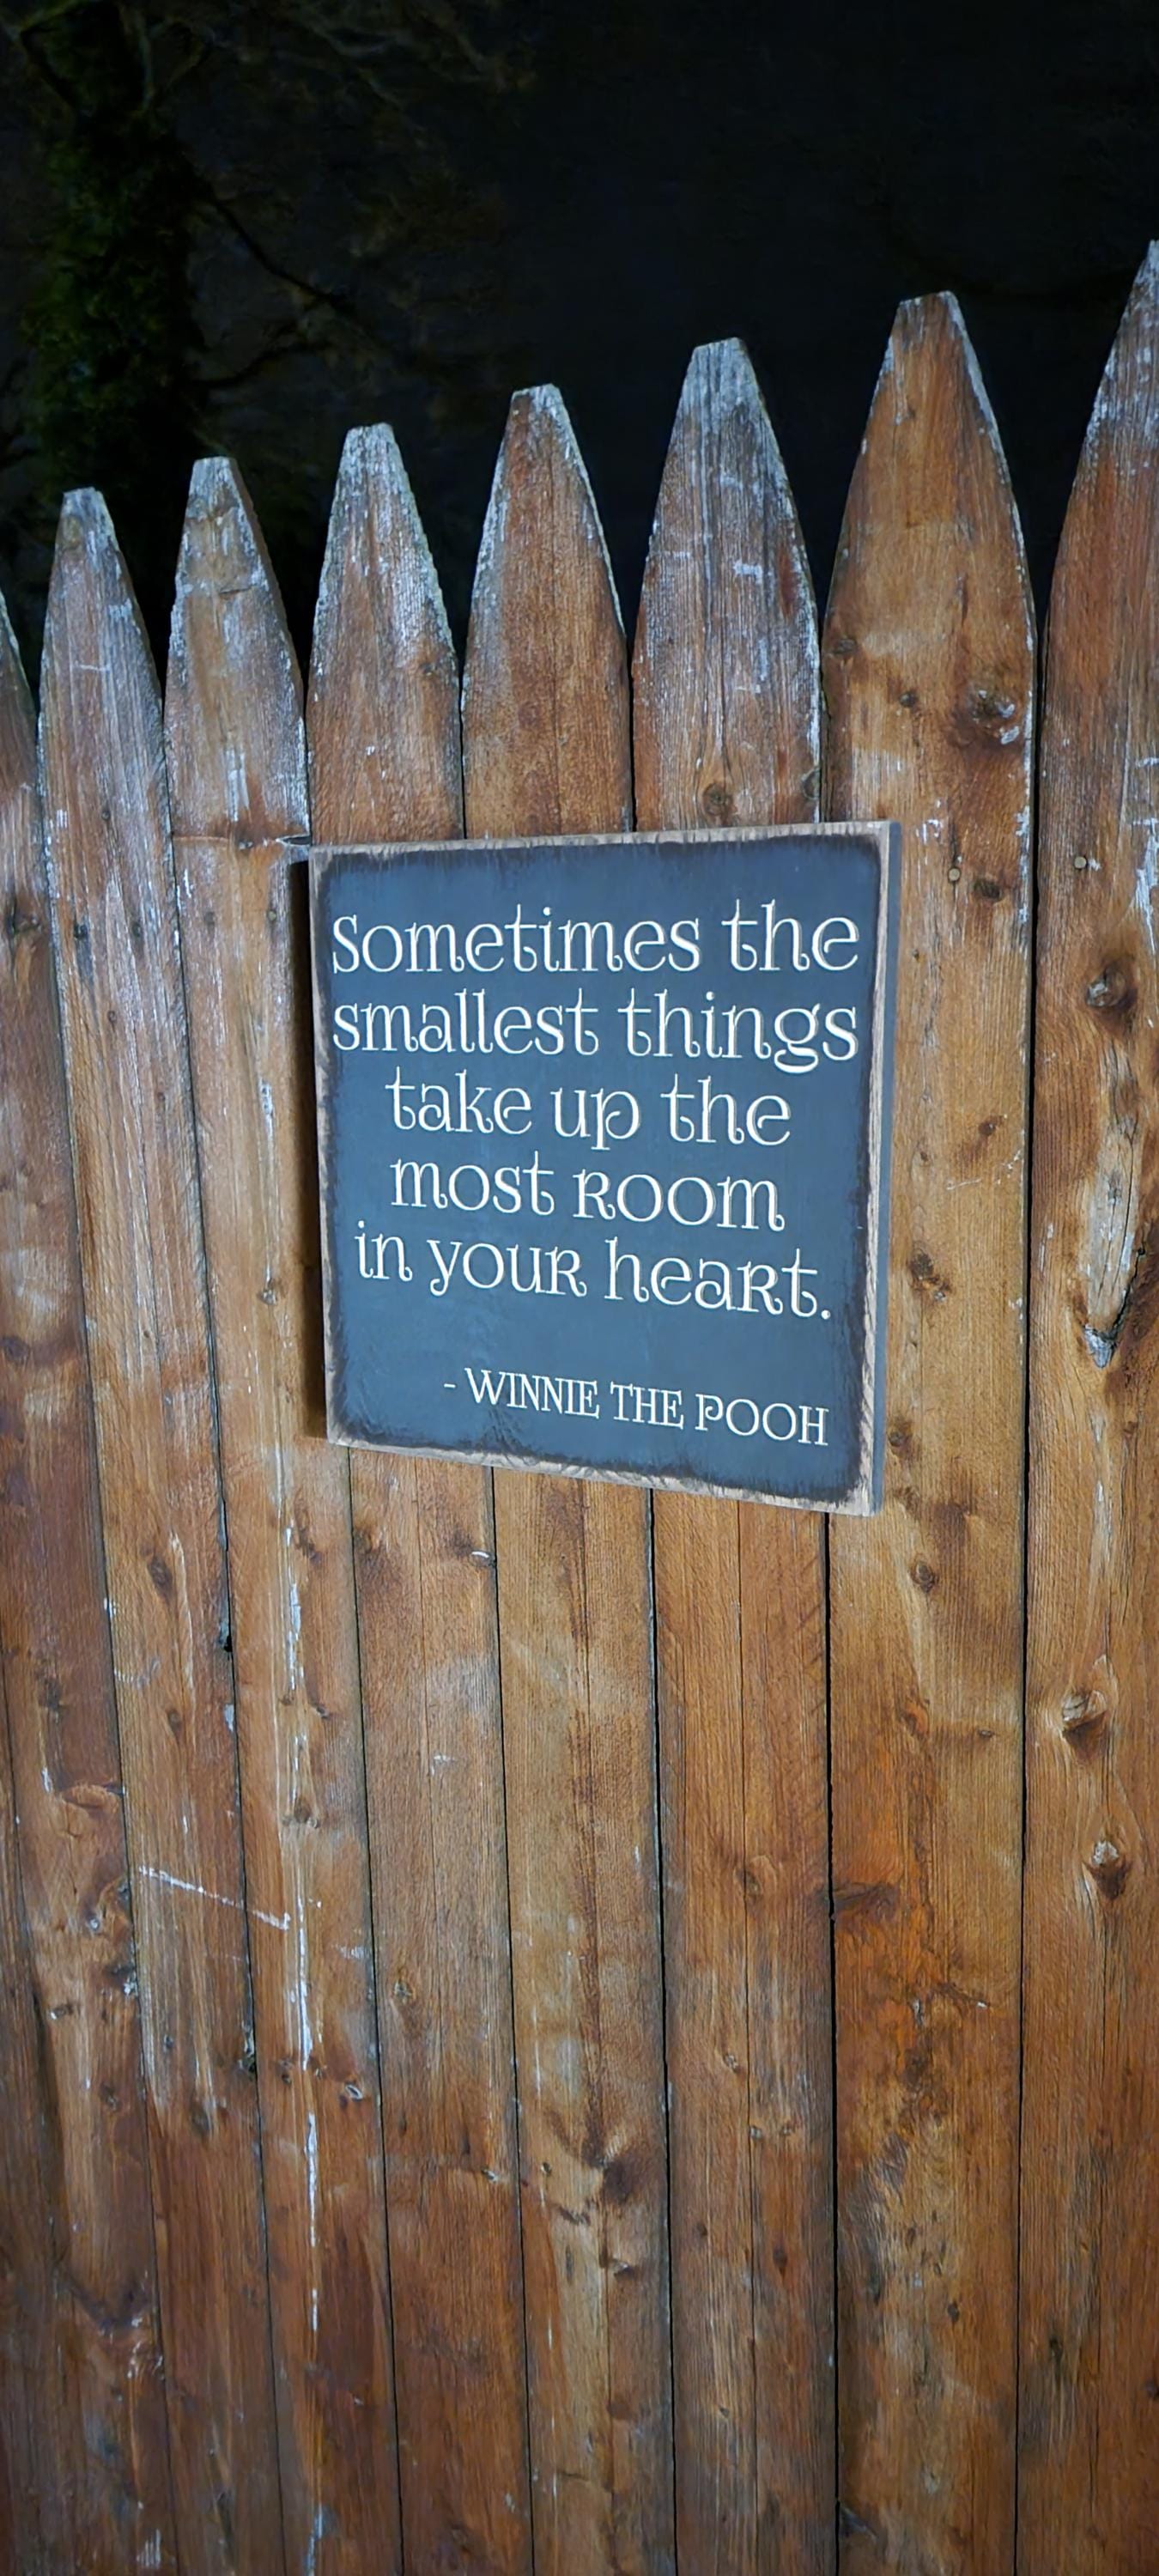 Sometimes the
smallest things
take up the
most room
in your heart.
- WINNIE THE POOH